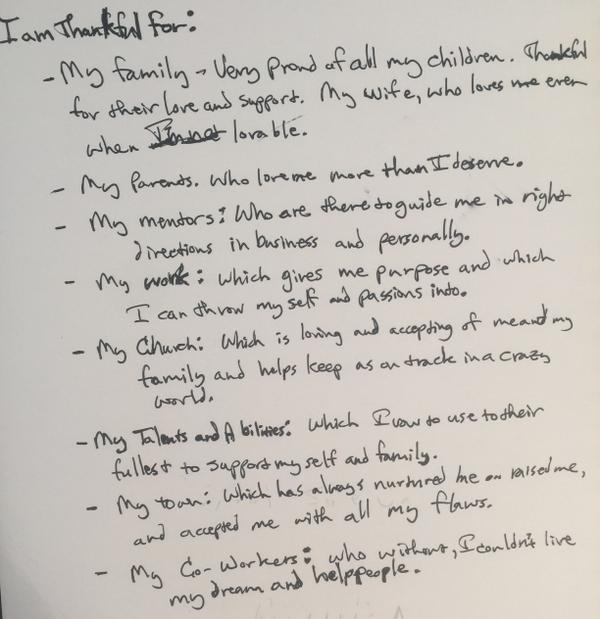 I am Thankful for:
- My family - Very proud of all my children. Thankful
for their love and support. My wife, who loves me even
when I'm not lovable.
- My Parents. Who love me more than I deserve.
- My mentors: Who are there to guide me in right
directions in business and personally.
- My work: which gives me purpose and which
I can throw my self and passions into.
- My Church: Which is loving and accepting of me and my
family and helps keep as on track in a crazy
world.
- My Talents and Abilities: which I vow to use to their
fullest to support my self and family.
- My town: Which has always nurtured me raised me,
and accepted me with all my flaws.
- My Co-Workers: who without, I couldn't live
my dream and help people.